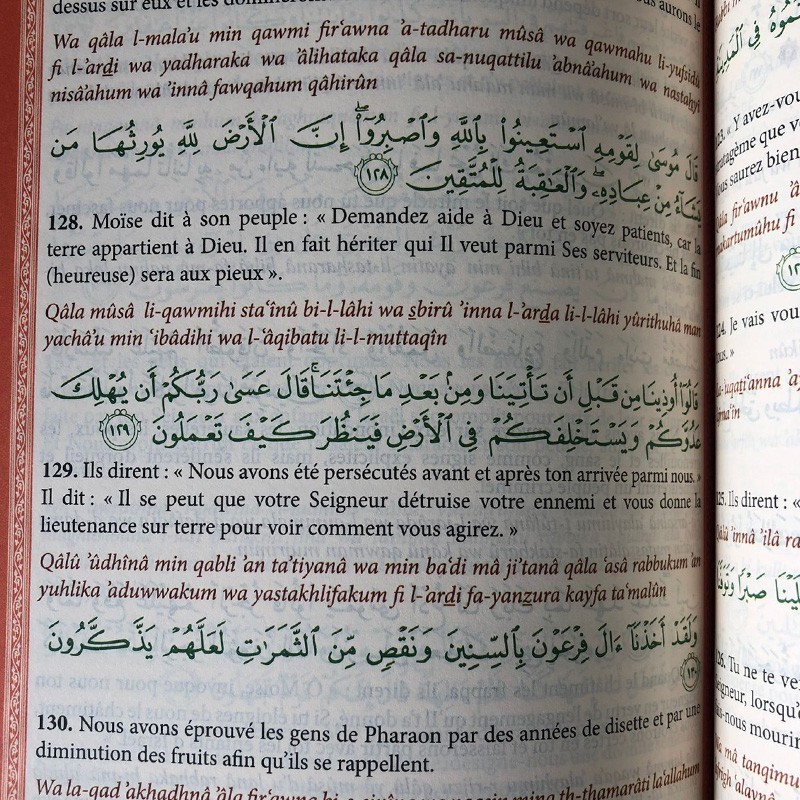 dessus sur eux et les
aurons le
Wa qâla l-mala'u min qawmi fir'awna 'a-tadharu mûsâ wa qawmahu li-yufsidû
fi l-'arḍi wa yadharaka wa 'âlihataka qâla sa-nuqattilu 'abnâ'ahum wa nastaḥyî
nisâ'ahum wa 'innâ fawqahum qâhirûn
قَالَ مُوسَىٰ لِقَوْمِهِ ٱسْتَعِينُوا۟ بِٱللَّهِ وَٱصْبِرُوٓا۟ۖ إِنَّ ٱلْأَرْضَ لِلَّهِ يُورِثُهَا مَن
يَشَآءُ مِنْ عِبَادِهِۦۖ وَٱلْعَٰقِبَةُ لِلْمُتَّقِينَ ١٢٨
128. Moïse dit à son peuple : « Demandez aide à Dieu et soyez patients, car la
terre appartient à Dieu. Il en fait hériter qui Il veut parmi Ses serviteurs. Et la fin
(heureuse) sera aux pieux ».
Qâla mûsâ li-qawmihi sta'înû bi-l-lâhi wa sbirû 'inna l-'arda li-l-lâhi yûrithuhâ man
yachâ'u min 'ibâdihi wa l-'âqibatu li-l-muttaqîn
قَالُوٓا۟ أُوذِينَا مِن قَبْلِ أَن تَأْتِيَنَا وَمِنۢ بَعْدِ مَا جِئْتَنَاۚ قَالَ عَسَىٰ رَبُّكُمْ أَن يُهْلِكَ
عَدُوَّكُمْ وَيَسْتَخْلِفَكُمْ فِى ٱلْأَرْضِ فَيَنظُرَ كَيْفَ تَعْمَلُونَ ١٢٩
129. Ils dirent : « Nous avons été persécutés avant et après ton arrivée parmi nous. »
Il dit : « Il se peut que votre Seigneur détruise votre ennemi et vous donne la
lieutenance sur terre pour voir comment vous agirez. »
Qâlû 'ûdhînâ min qabli 'an ta'tiyanâ wa min ba'di mâ ji'tanâ qâla 'asâ rabbukum 'an
yuhlika 'aduwwakum wa yastakhlifakum fi l-'ardi fa-yanzura kayfa ta'malûn
وَلَقَدْ أَخَذْنَآ ءَالَ فِرْعَوْنَ بِٱلسِّنِينَ وَنَقْصٍ مِّنَ ٱلثَّمَرَٰتِ لَعَلَّهُمْ يَذَّكَّرُونَ
١٣٠
130. Nous avons éprouvé les gens de Pharaon par des années de disette et par une
diminution des fruits afin qu'ils se rappellent.
Wa la-qad 'akhadhnâ 'âla fir'awna bi-s-sinîna wa naqsin mina th-thamarâti la'allahum
« Y avez-vou
que v
saurez bien
Je vais vou
Ils dirent : «
Qâlû 'innâ 'ilâ ra
Tu ne te ve
lorsqu'
mourir
mâ tanqimu